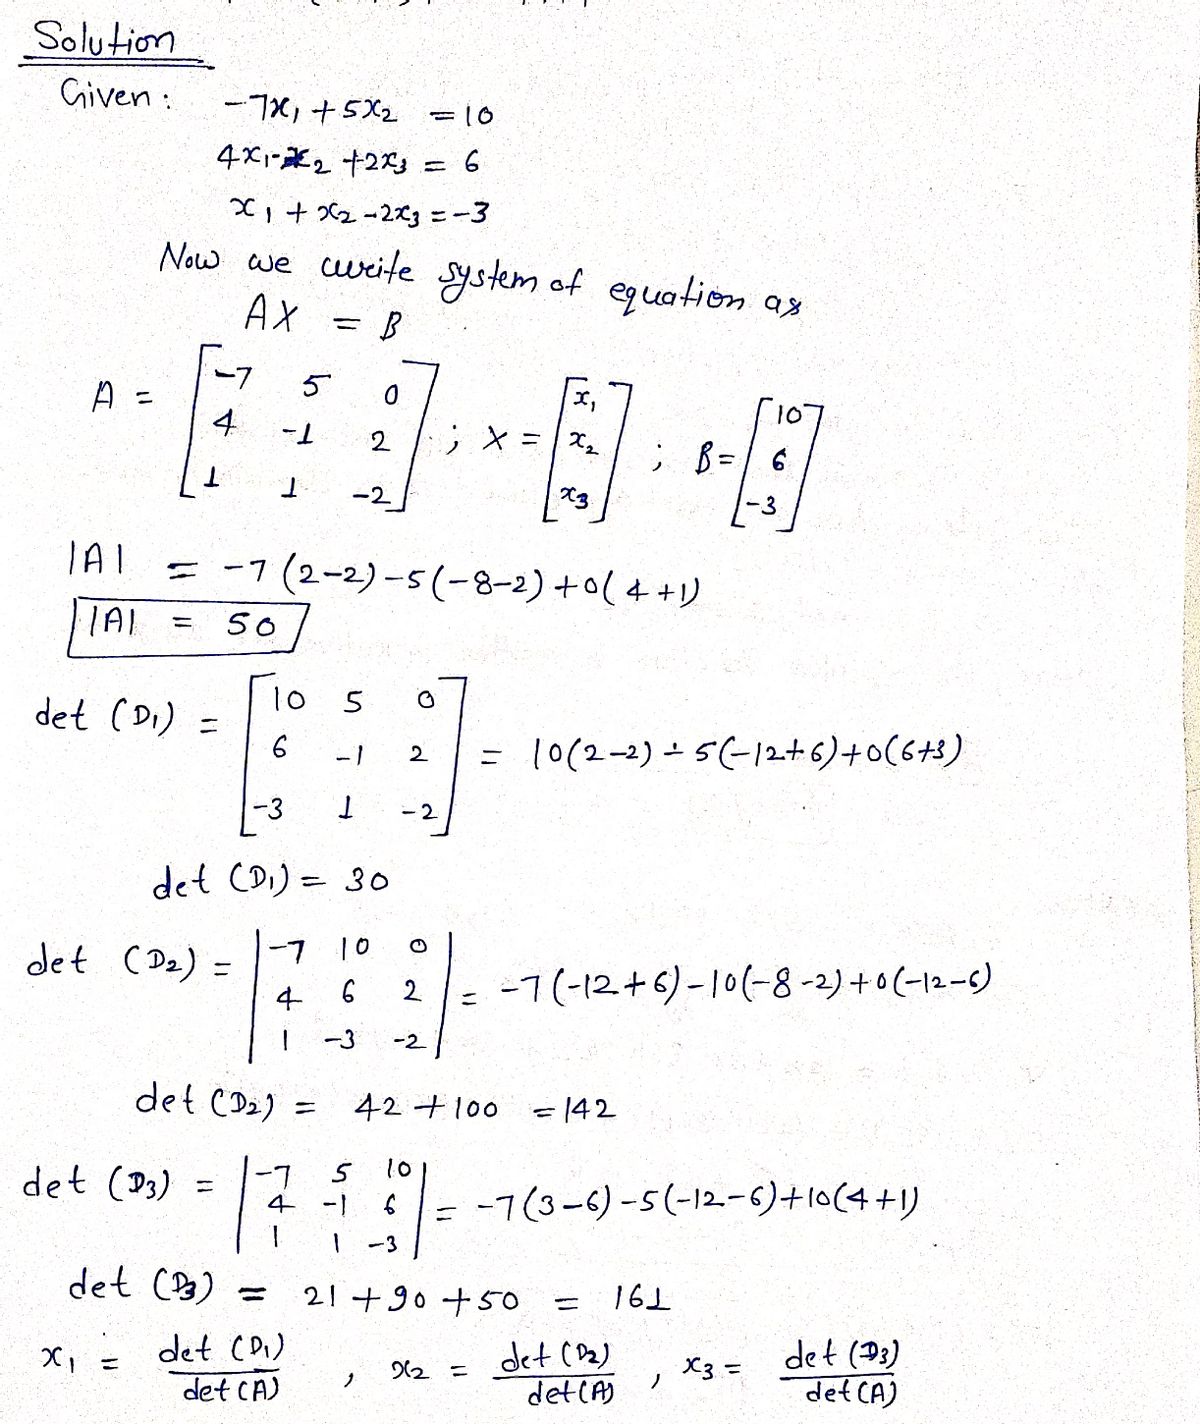 Solution
Given: -7x₁ + 5x₂ = 10
4x₁ - x₂ + 2x₃ = 6
x₁ + x₂ - 2x₃ = -3
Now we write system of equation as
AX = B
A = [-7 5 0; 4 -1 2; 1 1 -2] ; X = [x₁; x₂; x₃] ; B = [10; 6; -3]
|A| = -7(2-2) -5(-8-2) + 0(4+1)
|A| = 50
det (D₁) = [10 5 0; 6 -1 2; -3 1 -2] = 10(2-2) - 5(-12+6) + 0(6+3)
det (D₁) = 30
det (D₂) = |-7 10 0; 4 6 2; 1 -3 -2| = -7(-12+6) - 10(-8-2) + 0(-12-6)
det (D₂) = 42 + 100 = 142
det (D₃) = |-7 5 10; 4 -1 6; 1 1 -3| = -7(3-6) -5(-12-6) + 10(4+1)
det (D₃) = 21 + 90 + 50 = 161
x₁ = det (D₁) / det (A) , x₂ = det (D₂) / det (A) , x₃ = det (D₃) / det (A)